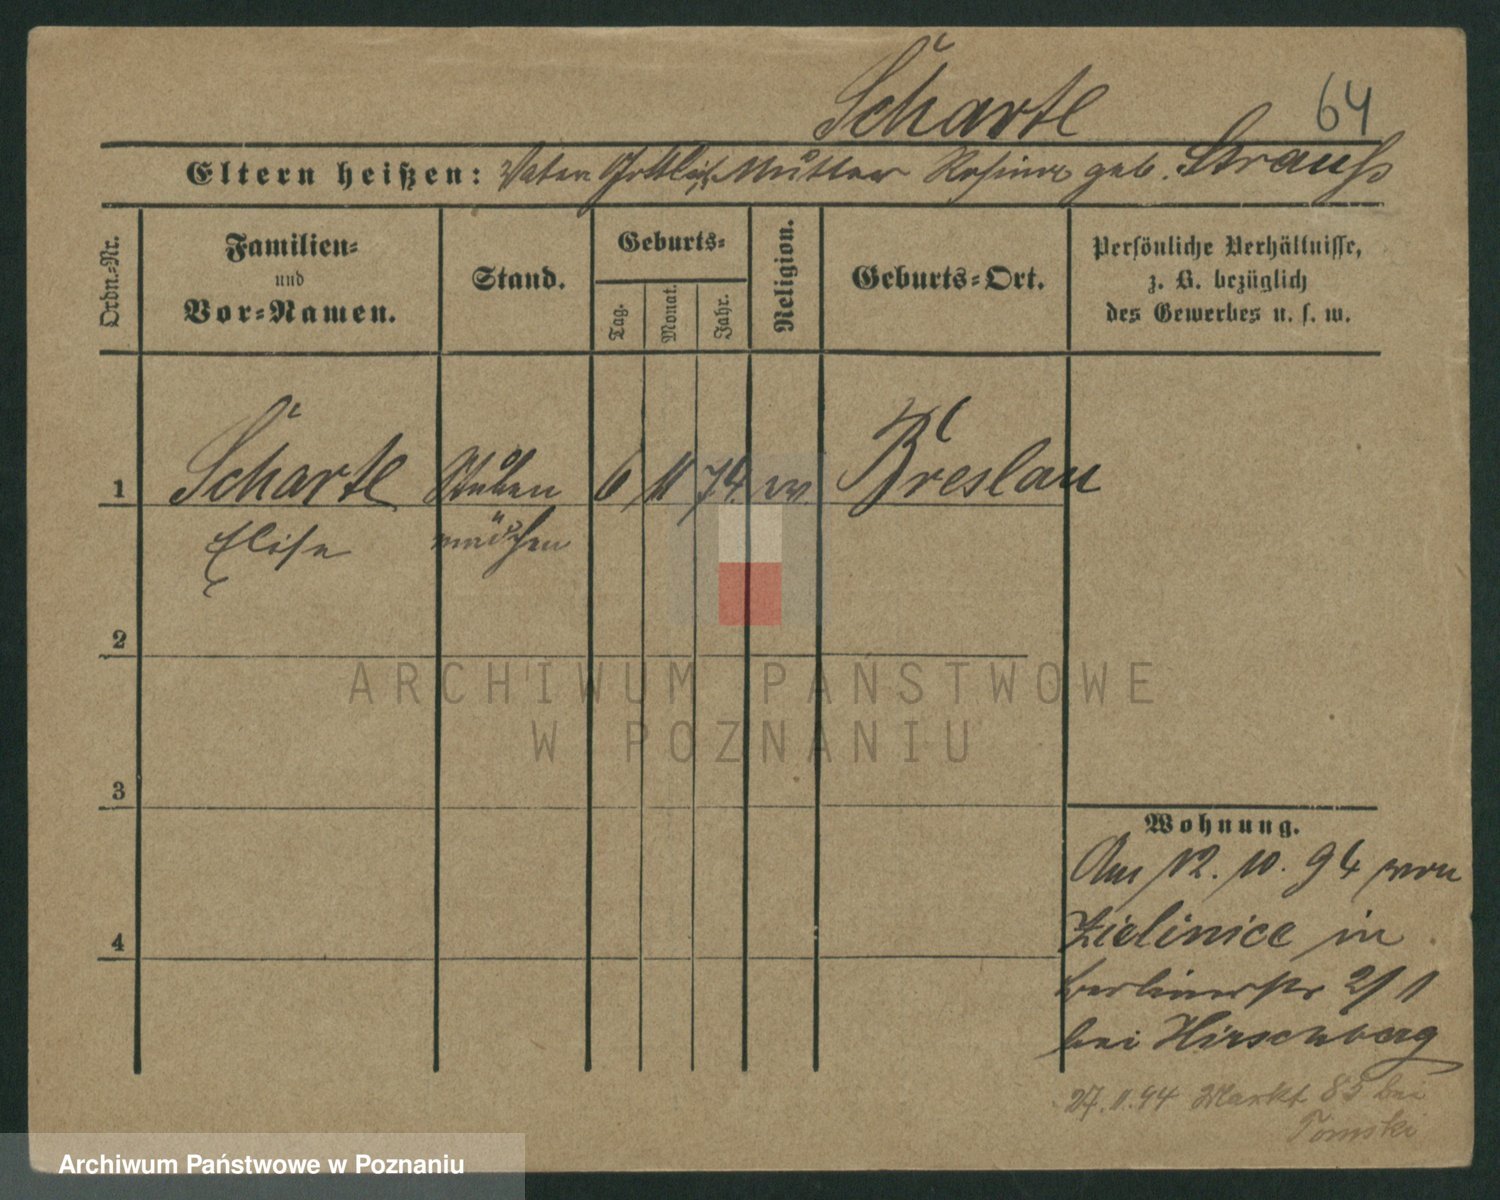 Scharte 64
Eltern heißen: Vater Gottlieb Mutter Rosina geb. Strauß
Ordn.-Nr.
Familien-
und
Vor-Namen.
Stand.
Geburts-
Tag.
Monat.
Jahr.
Religion.
Geburts-Ort.
Persönliche Verhältnisse,
z. B. bezüglich
des Gewerbes u. s. w.
1 Scharte Stuben 6 11 74. ev. Breslau
Elise mädchen
2
3
4
Wohnung.
Am 12. 10. 94 von
Zielinice in
Berlinerstr 2/1
bei Hirschberg
27.11.94 Markt 85 bei
Tomski
ARCHIWUM PAŃSTWOWE
W POZNANIU
Archiwum Państwowe w Poznaniu